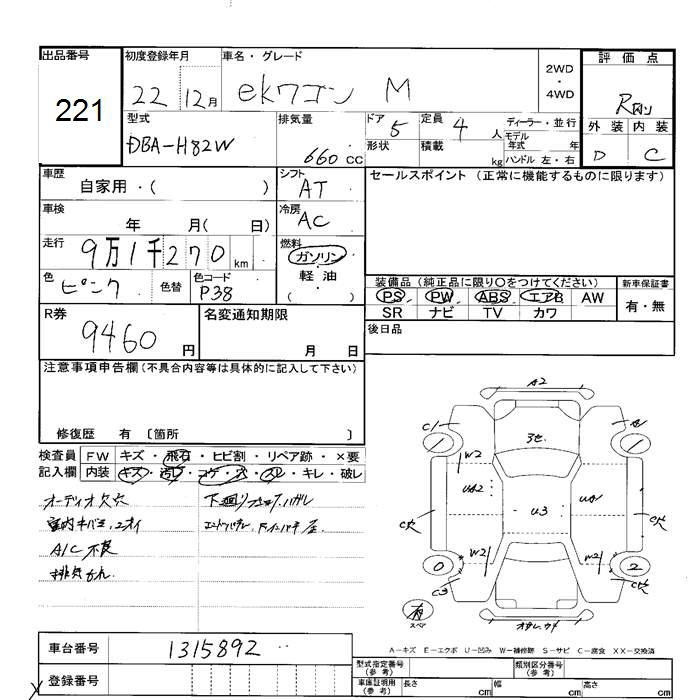 出品番号
221
初度登録年月
22 12月
車名・グレード
ekワゴン M
2WD
・
4WD
評価点
外装 内装
D C
型式
DBA-H82W
排気量
660 CC
ドア 5
形状
定員 4 人
積載 kg
ディーラー・並行
モデル年式 年
ハンドル 左・右
車歴
自家用・( )
シフト
AT
セールスポイント (正常に機能するものに限ります)
車検
年 月( 日)
冷房
AC
走行
9万1千270 km
燃料
ガソリン
軽油
( )
色
ピンク
色替
色コード
P38
装備品 (純正品に限り○をつけてください)
PS PW ABS エアB AW
SR ナビ TV カワ
新車保証書
有・無
R券
9460 円
名変通知期限
月 日
後日品
注意事項申告欄 (不具合内容等は具体的に記入して下さい)
修復歴 有 〔箇所 〕
検査員記入欄
FW キズ・飛石・ヒビ割・リペア跡・×要
内装 キズ・汚レ・コゲ・穴・スレ・キレ・破レ
オーディオ欠穴
A/C 不良
A2
C1
W2
UA2
U3
W2
W2
C3
0
2
スペア
A-キズ E-エクボ U-凹み W-補修跡 S-サビ C-腐食 XX-交換済
車台番号
1315892
登録番号
型式指定番号
(参考)
類別区分番号
(参考)
車庫証明用
(参考)
長さ cm
幅 cm
高さ cm